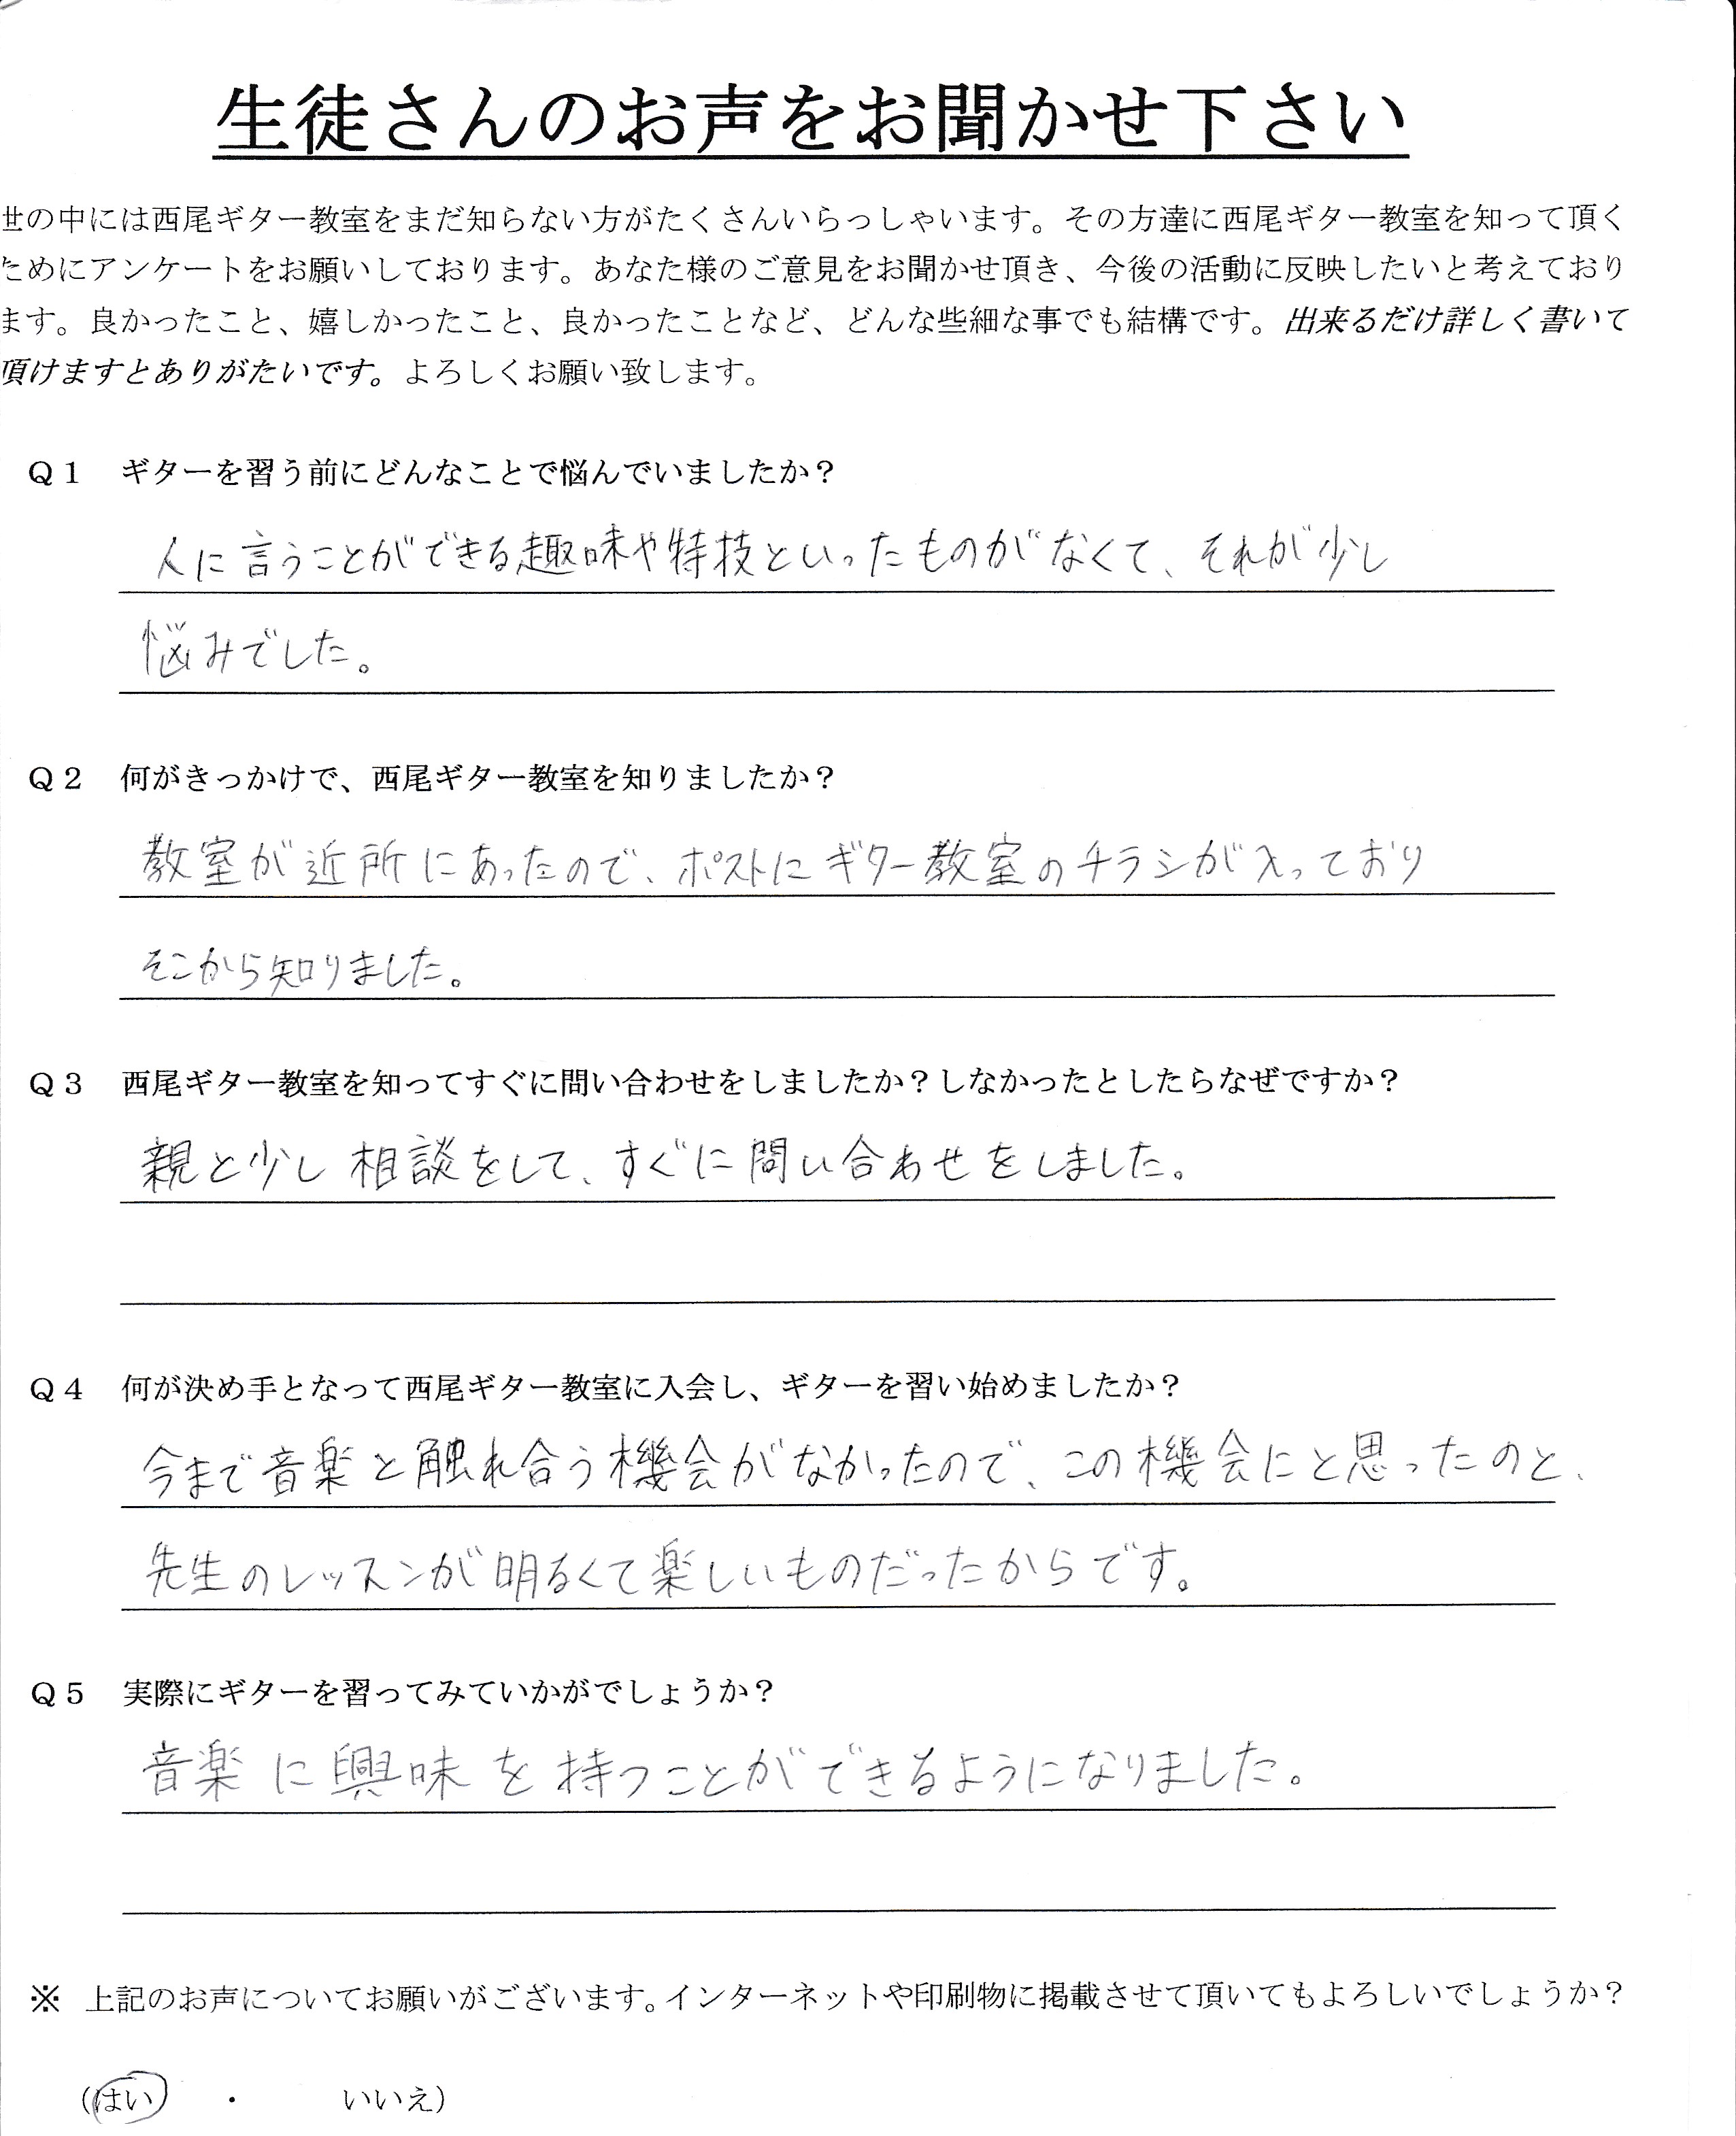 生徒さんのお声をお聞かせ下さい
世の中には西尾ギター教室をまだ知らない方がたくさんいらっしゃいます。その方達に西尾ギター教室を知って頂く
ためにアンケートをお願いしております。あなた様のご意見をお聞かせ頂き、今後の活動に反映したいと考えており
ます。良かったこと、嬉しかったこと、良かったことなど、どんな些細な事でも結構です。出来るだけ詳しく書いて
頂けますとありがたいです。よろしくお願い致します。
Q1 ギターを習う前にどんなことで悩んでいましたか？
人に言うことができる趣味や特技といったものがなくて、それが少し
悩みでした。
Q2 何がきっかけで、西尾ギター教室を知りましたか？
教室が近所にあったので、ポストにギター教室のチラシが入っており
そこから知りました。
Q3 西尾ギター教室を知ってすぐに問い合わせをしましたか？しなかったとしたらなぜですか？
親と少し相談をして、すぐに問い合わせをしました。
Q4 何が決め手となって西尾ギター教室に入会し、ギターを習い始めましたか？
今まで音楽と触れ合う機会がなかったので、この機会にと思ったのと、
先生のレッスンが明るくて楽しいものだったからです。
Q5 実際にギターを習ってみていかがでしょうか？
音楽に興味を持つことができるようになりました。
※ 上記のお声についてお願いがございます。インターネットや印刷物に掲載させて頂いてもよろしいでしょうか？
(はい ・ いいえ)